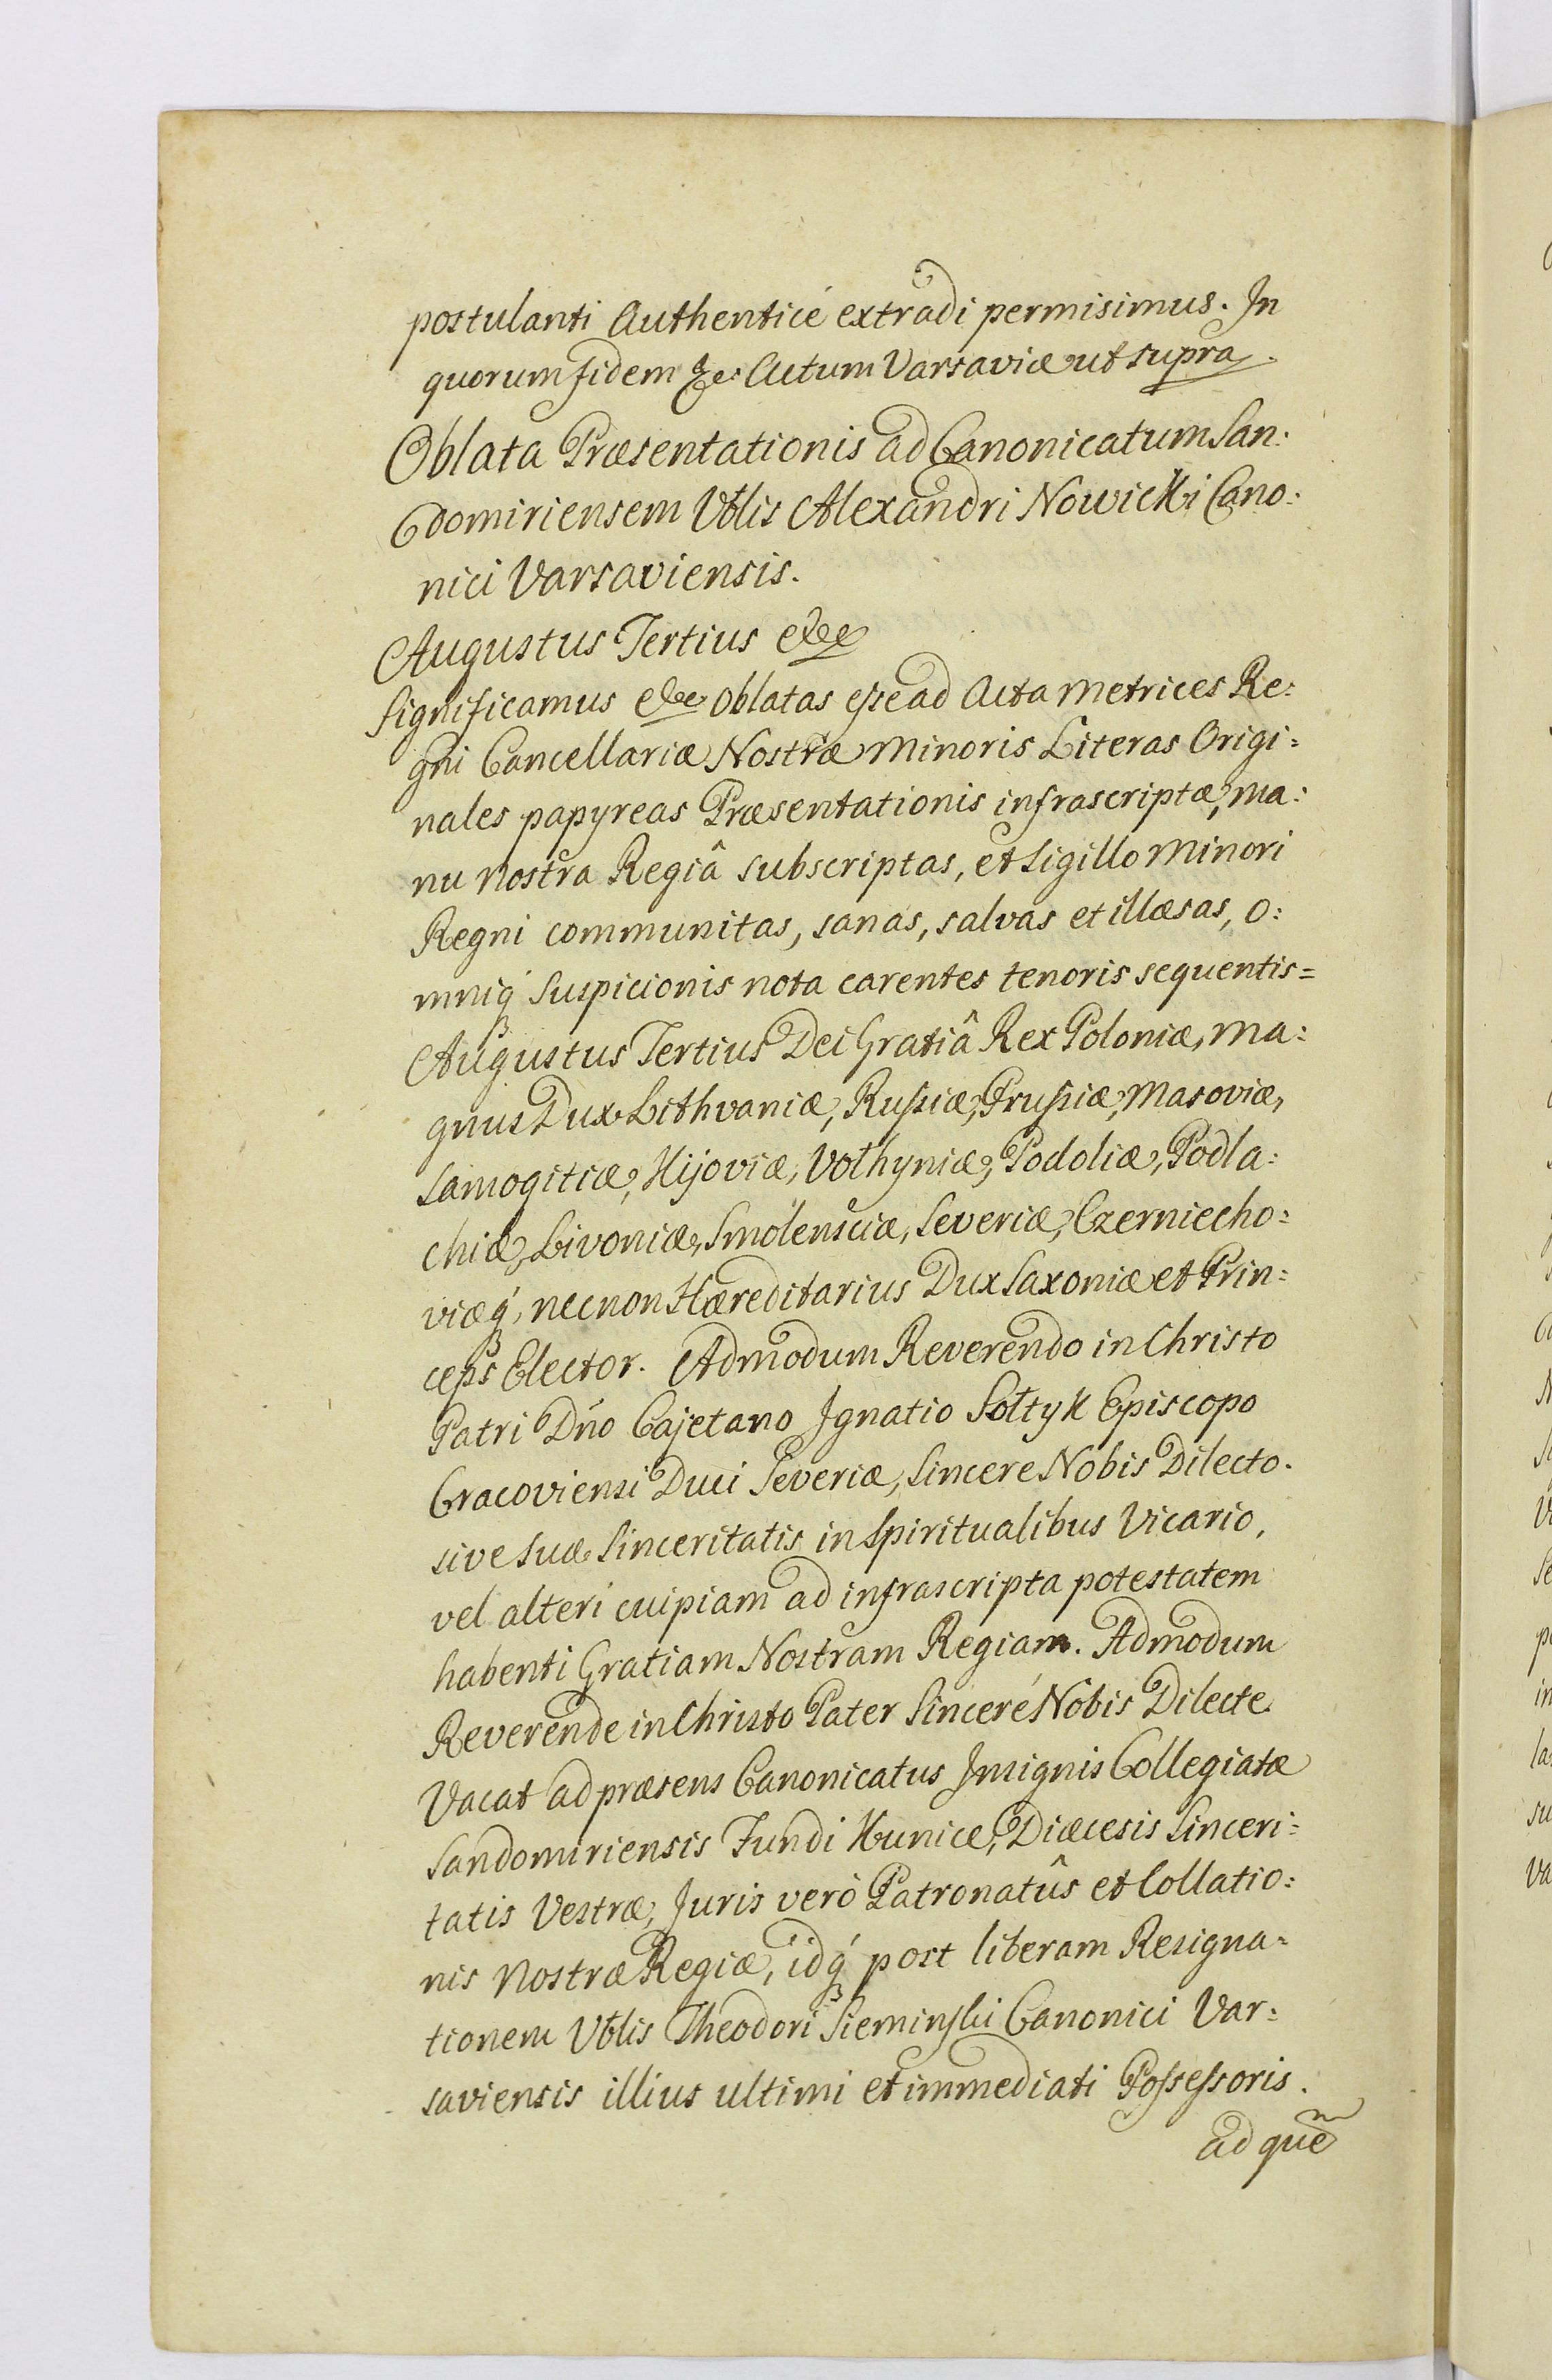 postulanti Authenticé extradi permisimus. In
quorum fidem &c: Actum Varsaviæ ut supra.
Oblata Præsentationis ad Canonicatum San:
domiriensem Vblis Alexandri Nowicki Cano:
nici Varsaviensis.
Augustus Tertius &c
Significamus &c Oblatas esse ad Acta Metrices Re:
gni Cancellariæ Nostræ Minoris Literas Origi=
nales papyreas Præsentationis infrascriptæ, ma:
nu Nostra Regiâ subscriptas, et Sigillo Minori
Regni communitas, sanas, salvas et illæsas, o:
mniq́ Suspicionis nota carentes tenoris sequentis=
Augustus Tertius Dei Gratiâ Rex Poloniæ, Ma:
gnus Dux Lithvaniæ, Russiæ, Prussiæ, Masoviæ,
Samogitiæ, Kijoviæ, Volhyniæ, Podoliæ, Podla:
chiæ, Livoniæ, Smolensciæ, Severiæ, Czerniecho:
viæq́, necnon Hæreditarius Dux Saxoniæ et Prin:
ceps Elector. Admodum Reverendo in Christo
Patri Dńo Cajetano Ignatio Sołtyk Episcopo
Cracoviensi Duci Severiæ, Sincere Nobis Dilecto.
sive Suæ Sinceritatis in Spiritualibus Vicario,
vel alteri cuipiam ad infrascripta potestatem
habenti Gratiam Nostram Regiam. Admodum
Reverende in Christo Pater Sinceré Nobis Dilecte
Vacat ad præsens Canonicatus Insignis Collegiatæ
Sandomiriensis Fundi Kunice, Diæcesis Sinceri:
tatis Vestræ, Juris verò Patronatûs et Collatio:
nis Nostræ Regiæ, idq́ post liberam Resigna=
tionem Vblis Theodori Sieminski Canonici Var:
saviensis illius ultimi et immediati Possessoris.
ad quem̃